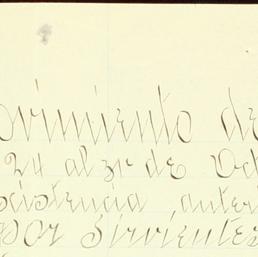 ovimiento de
24 al 31 de Oct
existencia anteri
por sirvientes